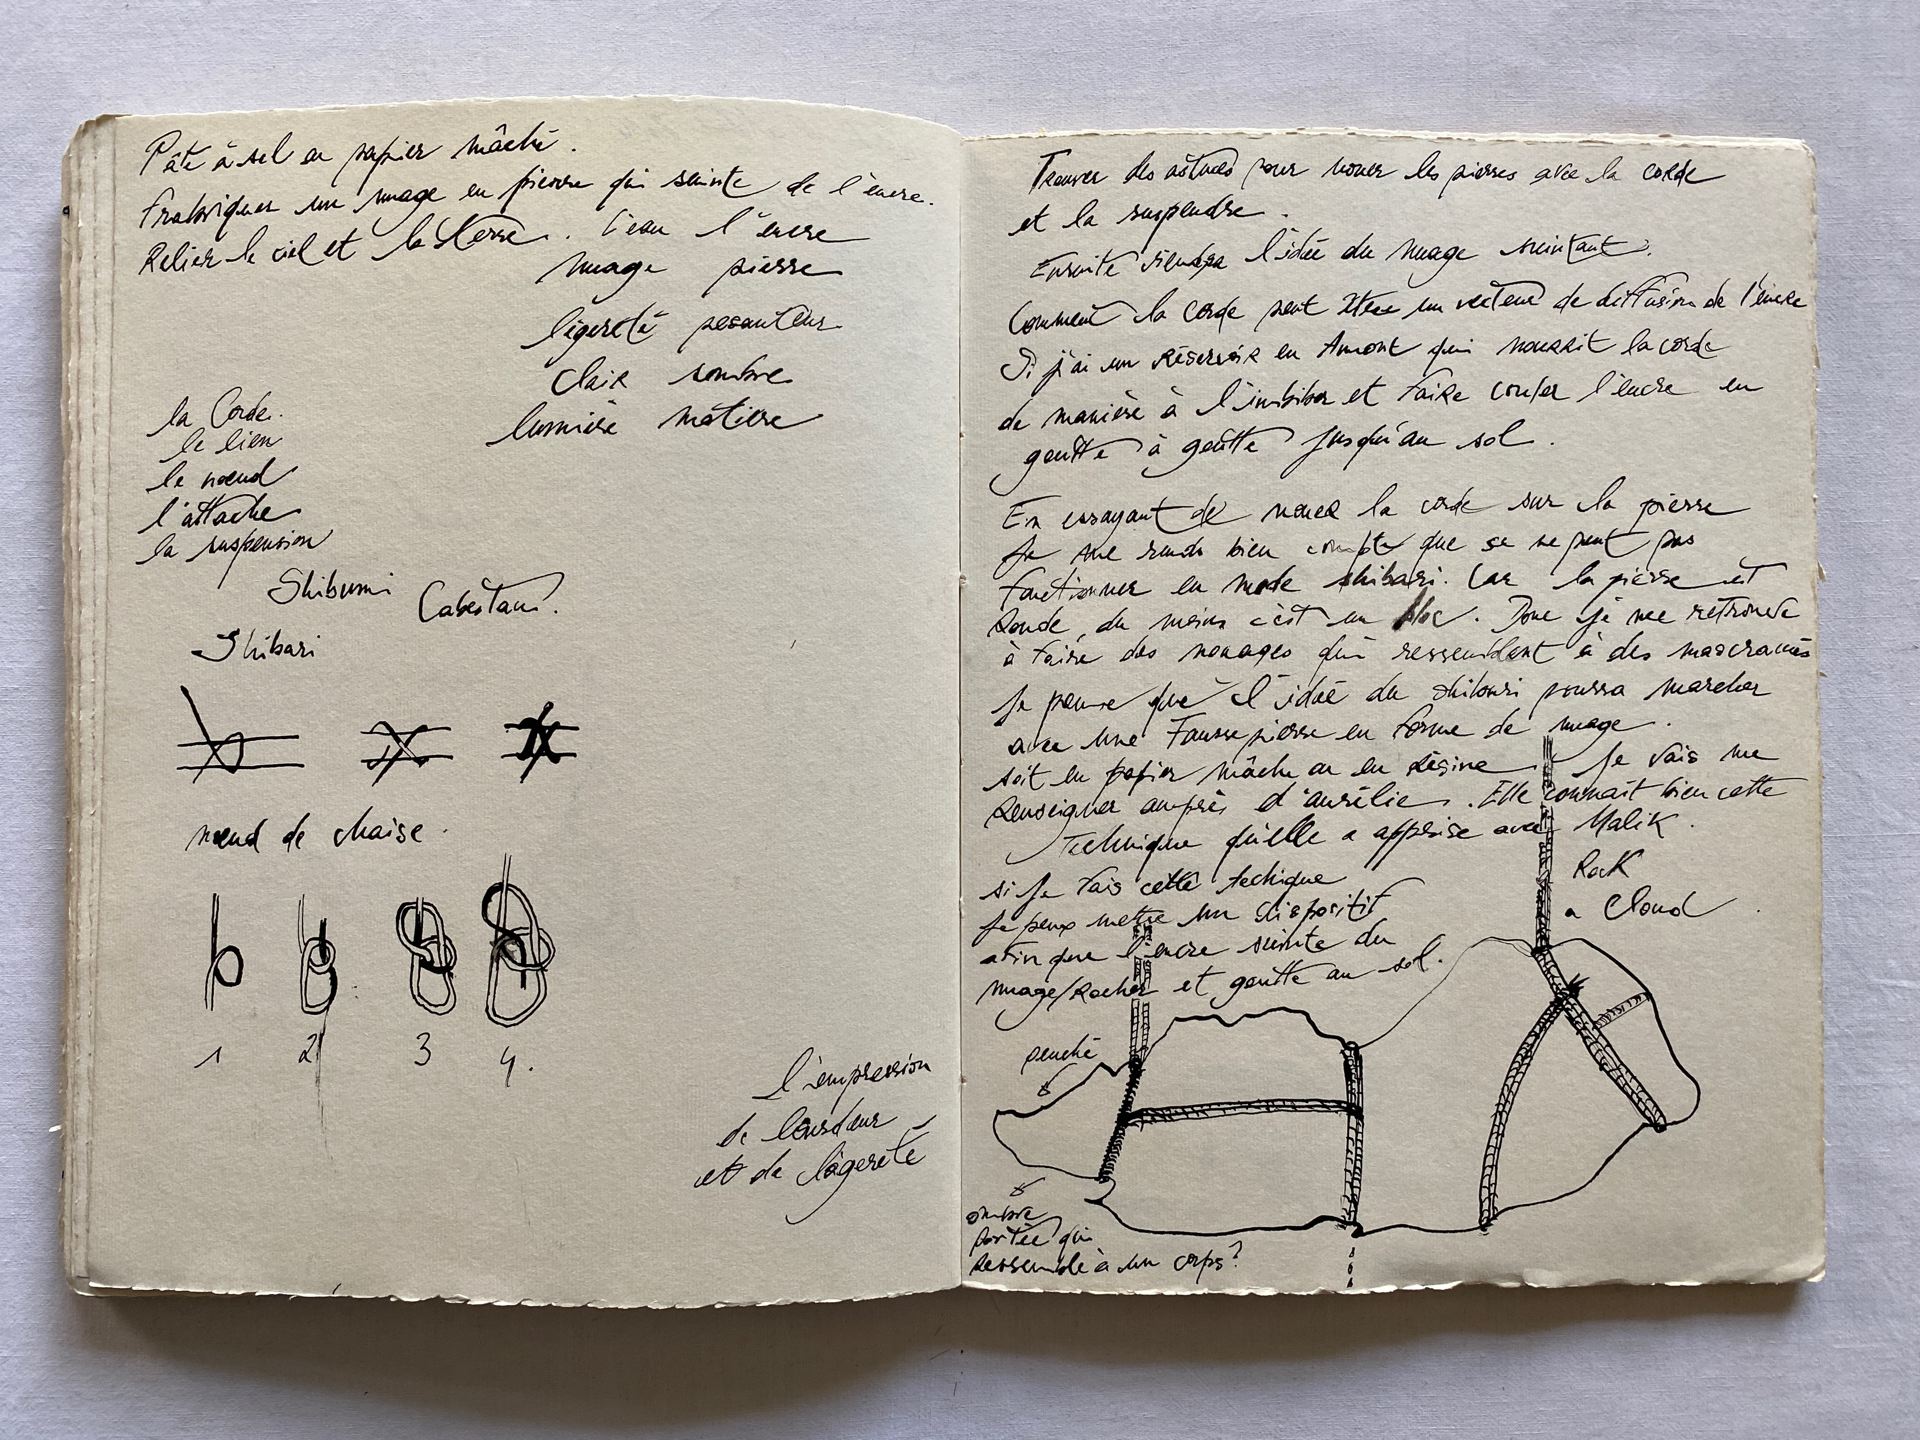 Pâte à sel ou papier mâché.
Frabriquer un nuage en pierre qui suinte de l'encre.
Relier le ciel et la terre. l'eau l'encre
nuage pierre
légèreté pesanteur
clair sombre
lumière matière
la Corde.
le lien
le nœud
l'attache
la suspension
Shibumi Cabestan.
Shibari
nœud de chaise.
1 2 3 4.
L'impression
de lourdeur
et de légèreté
Trouver des astuces pour nouer les pierres avec la corde
et la suspendre.
Ensuite viendra l'idée du nuage suintant.
Comment la corde peut être un vecteur de diffusion de l'encre
Si j'ai un réservoir en Amont qui nourrit la corde
de manière à l'imbiber et faire couler l'encre en
goutte à goutte jusqu'au sol.
En essayant de nouer la corde sur la pierre
je me rends bien compte que se ne peut pas
fonctionner en mode shibari. Car la pierre est
Ronde, du moins c'est un bloc. Donc je me retrouve
à faire des nouages qui ressemblent à des mascramés
je pense que l'idée du shibari pourra marcher
avec une Fausse pierre en forme de nuage.
soit en papier mâché ou en résine. Je vais me
Renseigner auprès d'aurélie. Elle connait bien cette
Technique qu'elle a apprise avec Malik.
si je fais cette techique
je peux mettre un dispositif
afin que l'encre suinte du
nuage/Rocher et goutte au sol.
Rock
a Cloud
penché
ombre
portée qui
ressemble à un corps?